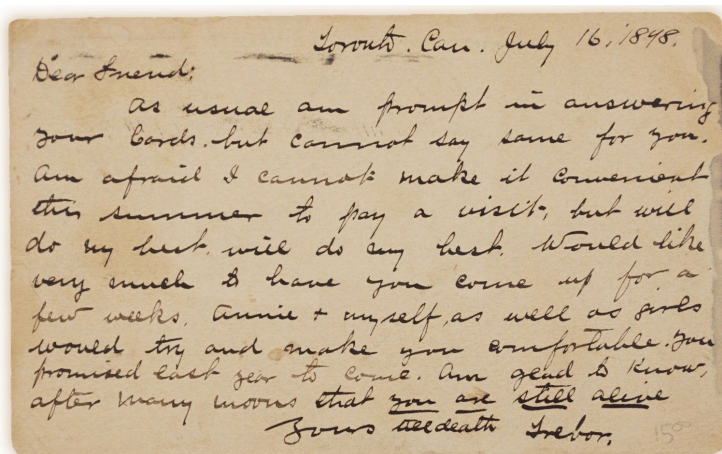 Toronto. Can. July 16, 1898.
Dear Friend:
As usual am prompt in answering
your Cards. but cannot say same for you.
Am afraid I cannot make it convenient
this summer to pay a visit, but will
do my best. will do my best. Would like
very much to have you come up for a
few weeks. Annie + myself, as well as girls
would try and make you comfortable. you
promised last year to come. Am glad to know,
after many moons that you are still alive
Yours till death Trevor.
15⁰⁰